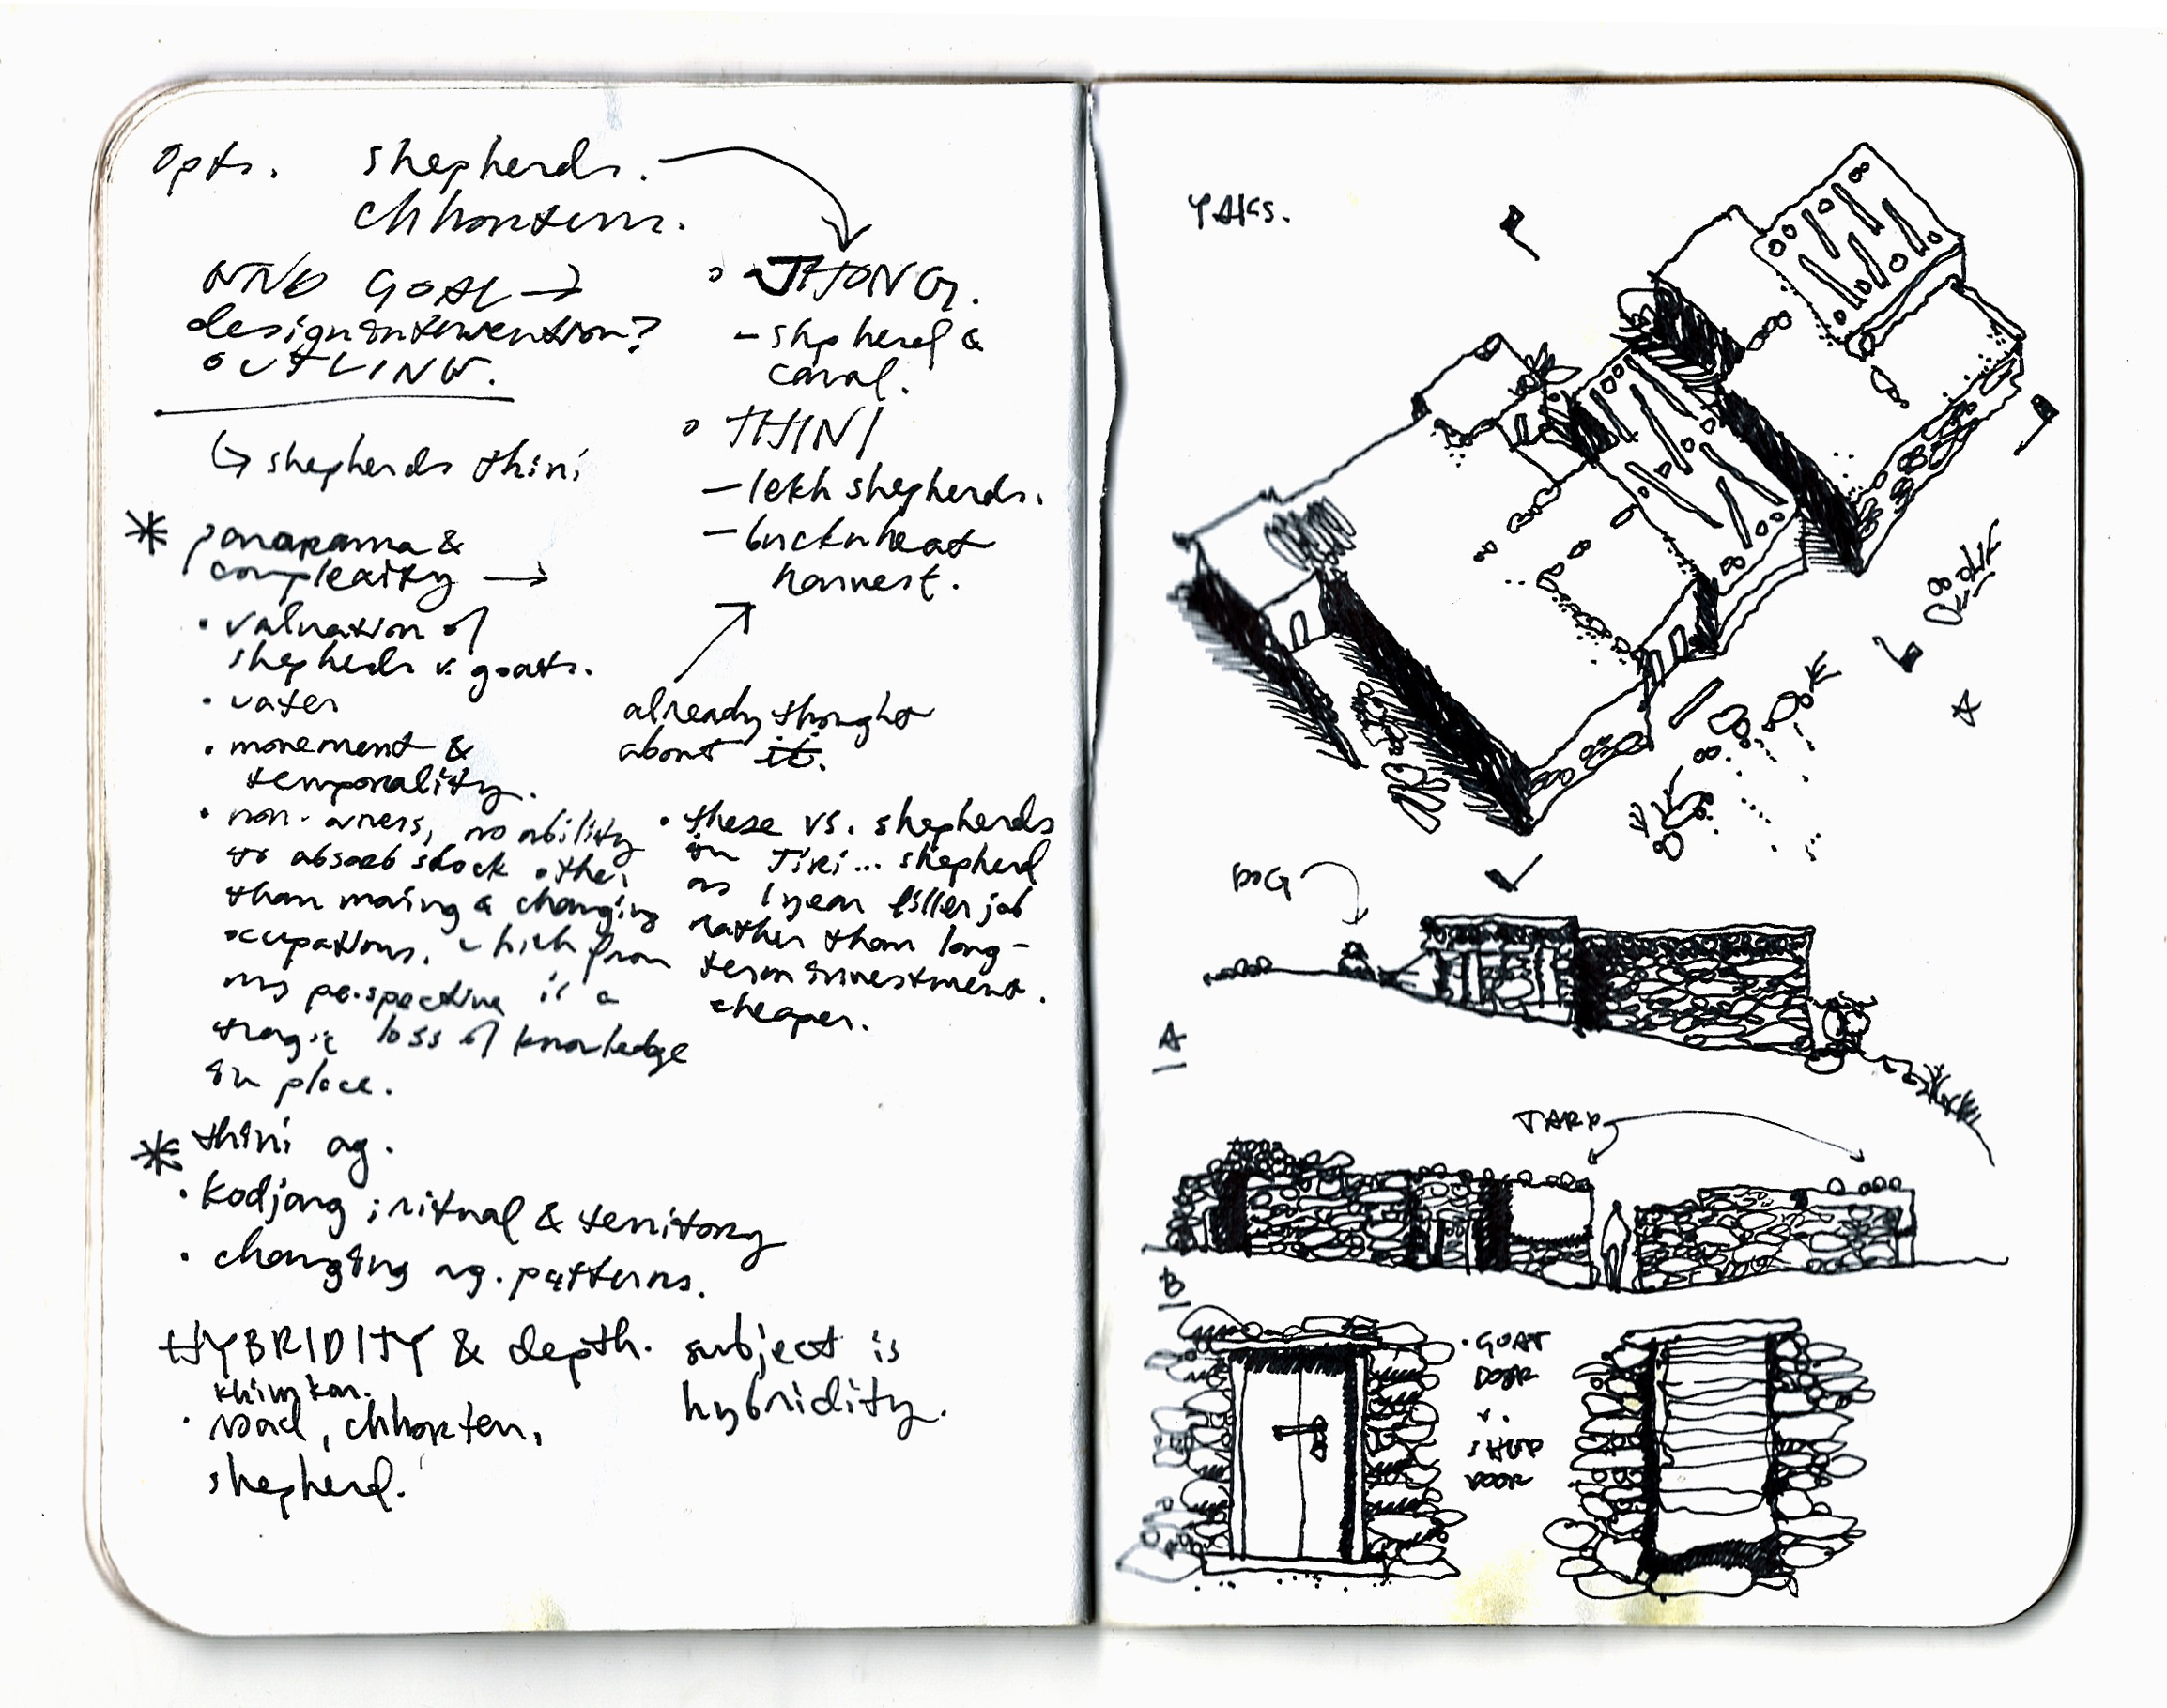 opts. shepherds.
chhortens.
END GOAL →
design intervention?
OUTLINE.
↳ shepherds thini
* panarama &
complexity →
• valuation of
shepherds v. goats.
• water
• movement &
temporality.
• non-owners, no ability
to absorb shock other
than moving & changing
occupations. which from
my perspective is a
tragic loss of knowledge
in place.
* thini ag.
• Kodjang; ritual & territory
• changing ag. patterns.
HYBRIDITY & depth.
khimkar.
• road, chhorten,
shepherd.
◦ JHONG.
- shpherd &
canal.
◦ THINI
- lekh shepherds.
- buckwheat
harvest.
already thought
about it.
• these vs. shepherds
in Jiri... shepherd
as 1 year filler job
rather than long-
term investment.
cheaper.
subject is
hybridity.
YAKS.
A
DOG
A
TARP
B
• GOAT
DOOR
v.
DOOR